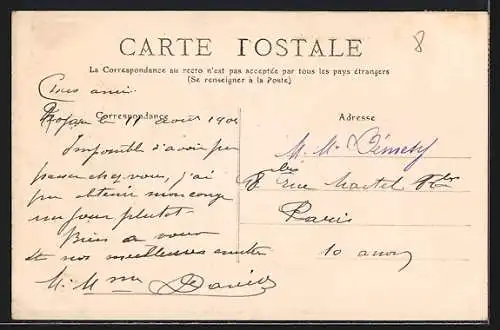 8
CARTE POSTALE
La Correspondance au recto n'est pas acceptée par tous les pays étrangers
(Se renseigner à la Poste)
Chers amis
Correspondance
le 11 Août 190
Impossible d'avoir pu
passer chez vous, j'ai
pu obtenir mon congé
un jour plutôt.
Bien à vous
et nos meilleures amitiés
M. Mme David
Adresse
M. M.
8 rue Martel
Paris
10 arron